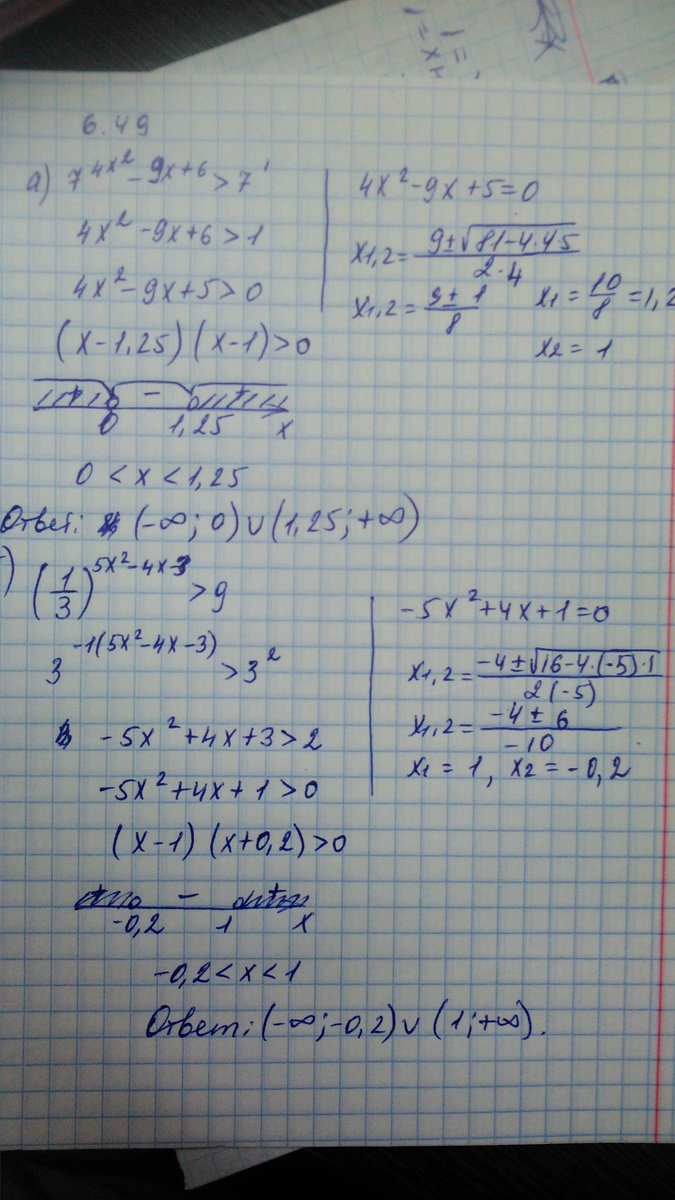 6.49
а) 7^(4x²-9x+6) > 7¹
4x²-9x+6 > 1
4x²-9x+5 > 0
(x-1,25)(x-1) > 0
+ - +
0 1,25 x
0 < x < 1,25
Ответ: (-∞; 0) ∪ (1,25; +∞)
4x²-9x+5=0
x1,2 = (9±√(81-4·4·5))/(2·4)
x1,2 = (9±1)/8 x1 = 10/8 = 1,2
x2 = 1
) (1/3)^(5x²-4x-3) > 9
3^(-1(5x²-4x-3)) > 3²
-5x²+4x+3 > 2
-5x²+4x+1 > 0
(x-1)(x+0,2) > 0
+ - +
-0,2 1 x
-0,2 < x < 1
Ответ: (-∞; -0,2) ∪ (1; +∞).
-5x²+4x+1=0
x1,2 = (-4±√(16-4·(-5)·1))/(2(-5))
x1,2 = (-4±6)/(-10)
x1 = 1, x2 = -0,2